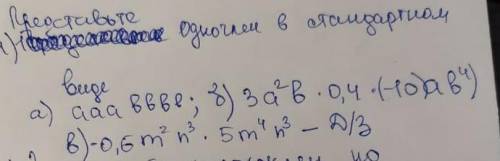 Представьте
1) одночлен в стандартном
виде
а) aaabbbb; б) 3a²b · 0,4 · (-10)ab⁴)
в) -0,6m²n³ · 5m⁴n³ – Д/З
но